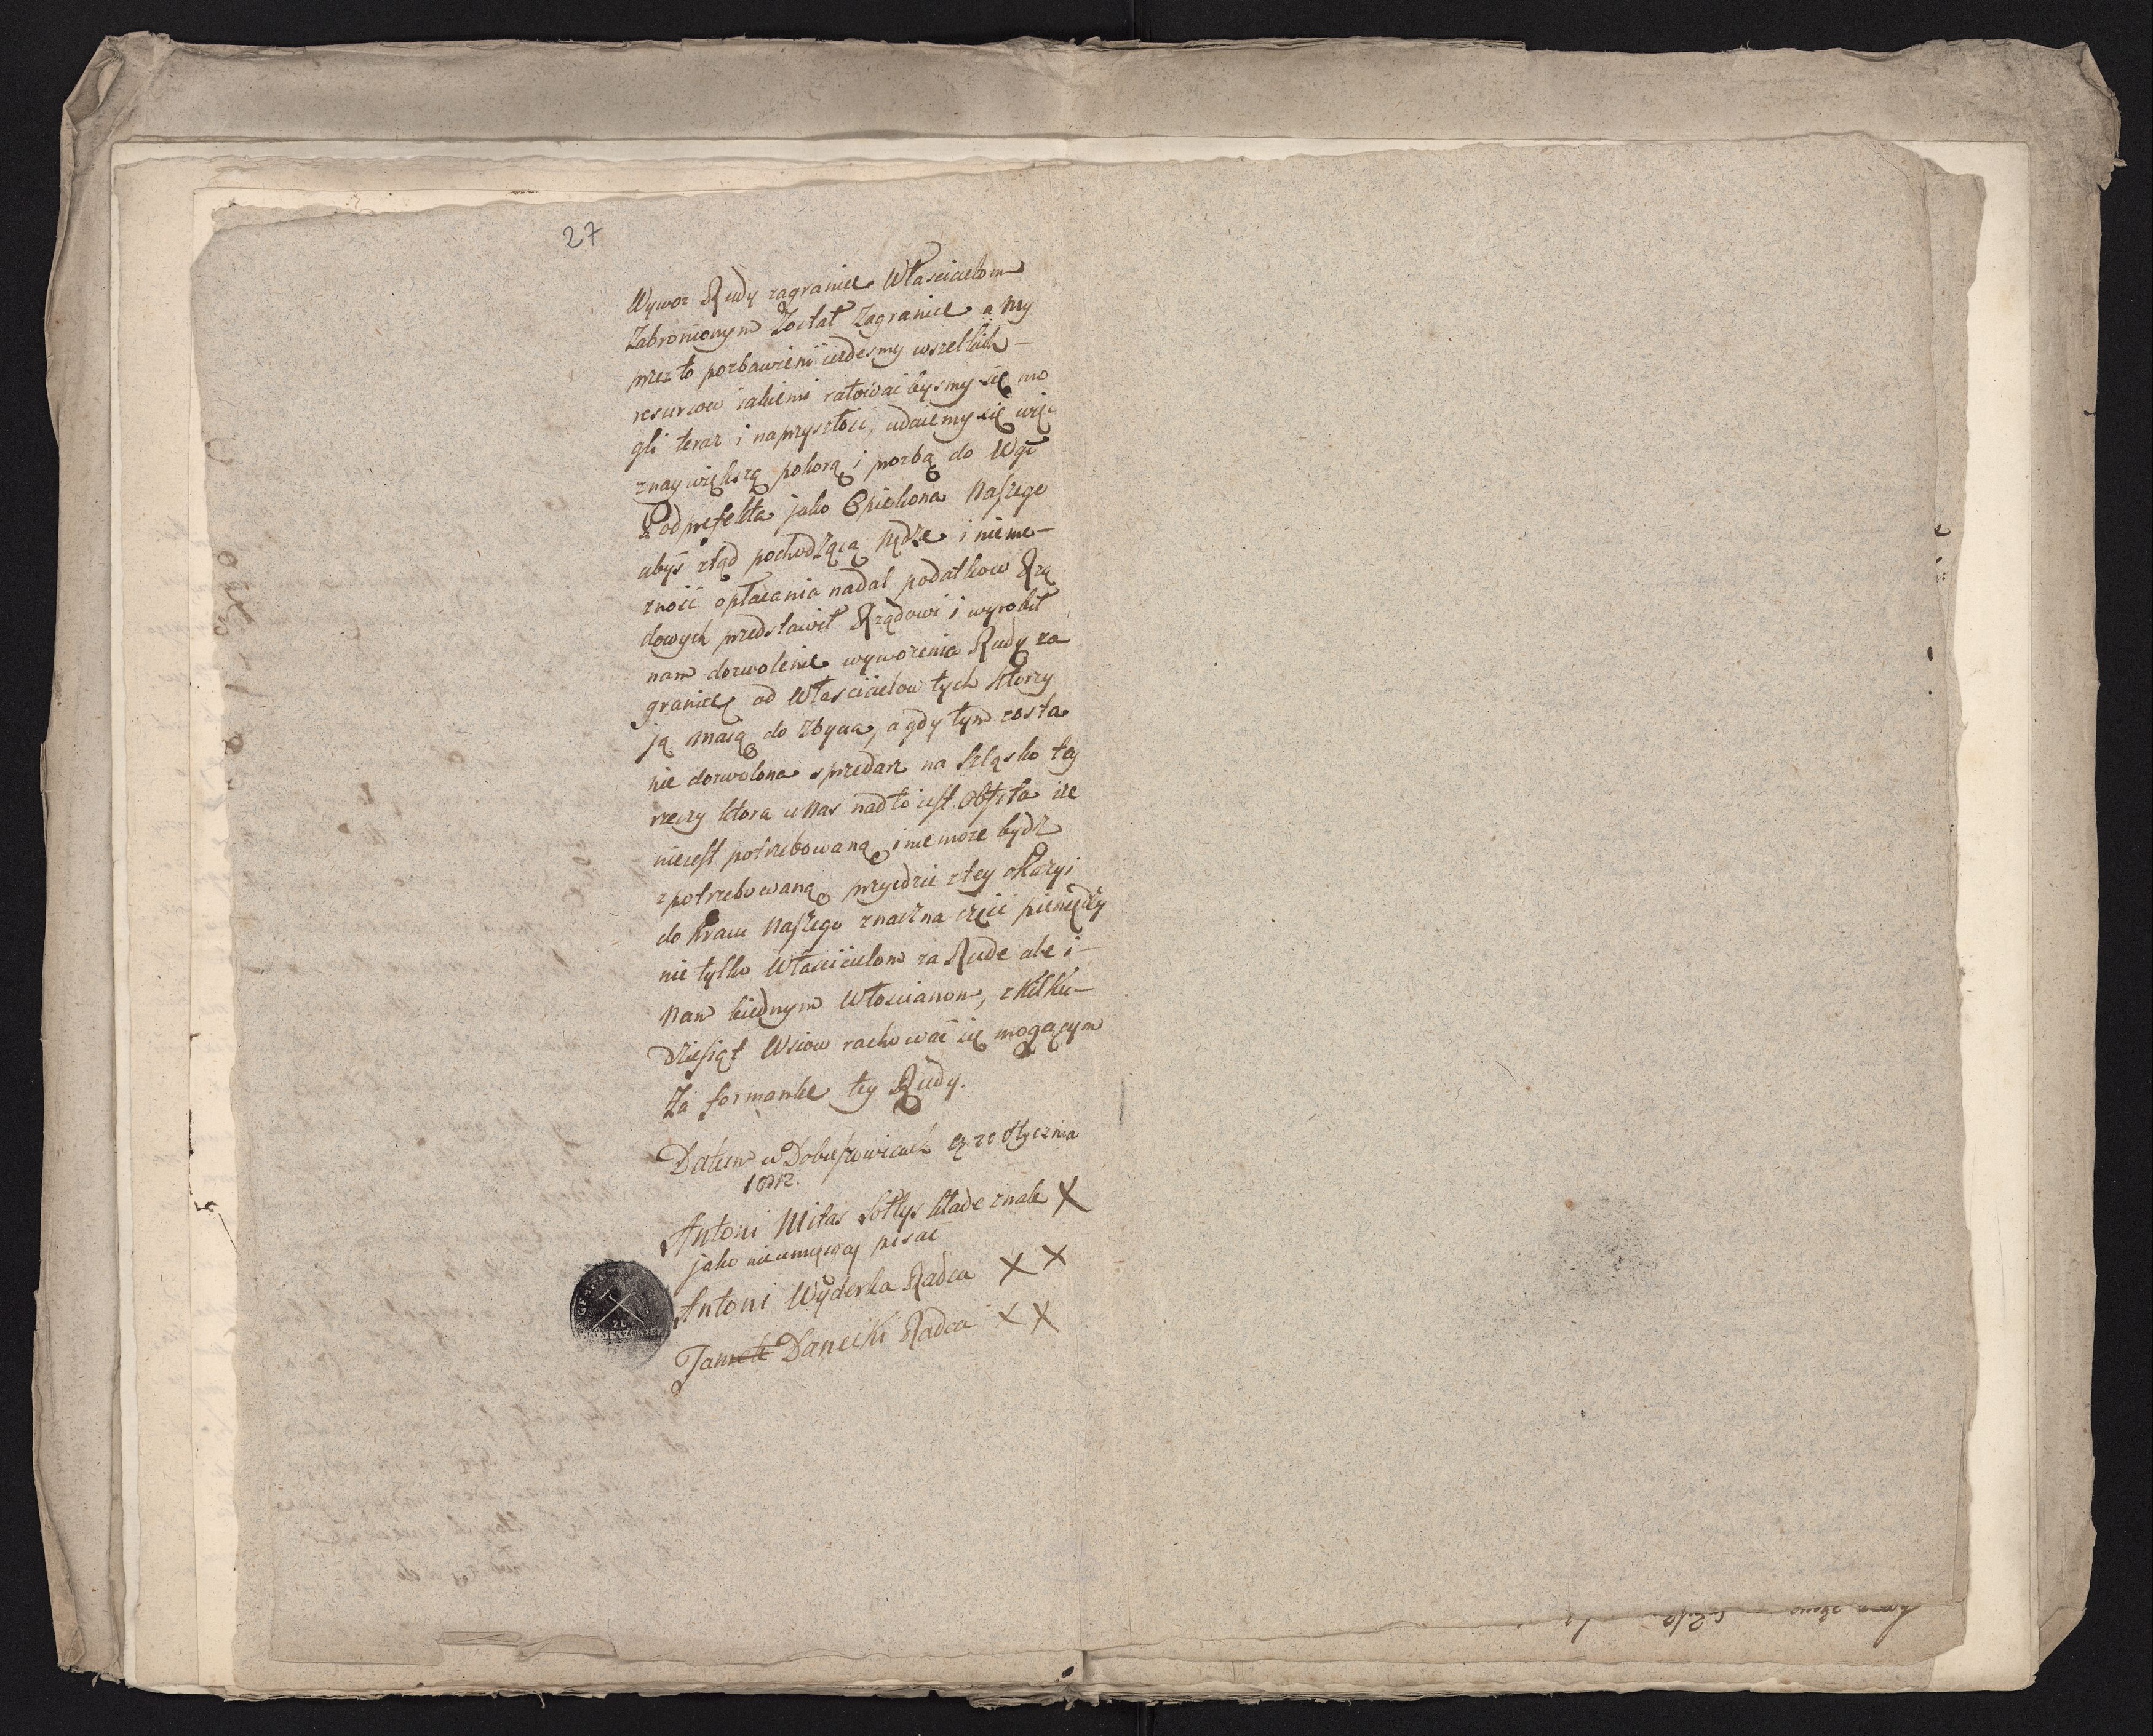 27
Wywoz Rudy zagranice Włascicielom
Zabronionym Został Zagranice a My
przez to pozbawieni iestesmy wszelkich –
resursow iakiemi ratowaċ bysmy się mo
gli teraz i naprzyszłość, udaiemy się więc
znaywiększą pokorą i prozbą do Wgo
Podprefekta jako Opiekona Naszego
abyś ztąd pochodzącą Nędze i niemo–
zność opłacania nadal podatkow Rzą
dowych przedstawił Rządowi i wyrobił
nam dozwolenie wywozenia Rudy za
granicę od Właścicielow tych ktorzy
ją maią do Zbycia, a gdy tym zosta
nie dozwolona sprzedaz na Szląsko tey
rzeczy ktora u Nas nadto iest Obfita ize
nieiest potrzebowaną i nie moze bydz
zpotrzebowaną przyidzie z tey okazyi
do Kraiu Naszego znaczna częsć pieniędzy
nie tylko Właścicielom za Rude ale i –
Nam biednym Włoscianom, z kilku–
dziesiąt Wsiow rachować się mogącym
Za formanke tey Rudy.
Datum w Dobieszowicach 20 Stycznia
1812.
Antoni Mitas Sołtys kłade znak X
jako nieumięiący pisać
Antoni Wyderka Radca X X
Jan Danecki Radca X X
GEM
ZU
DOBIESZOWICE